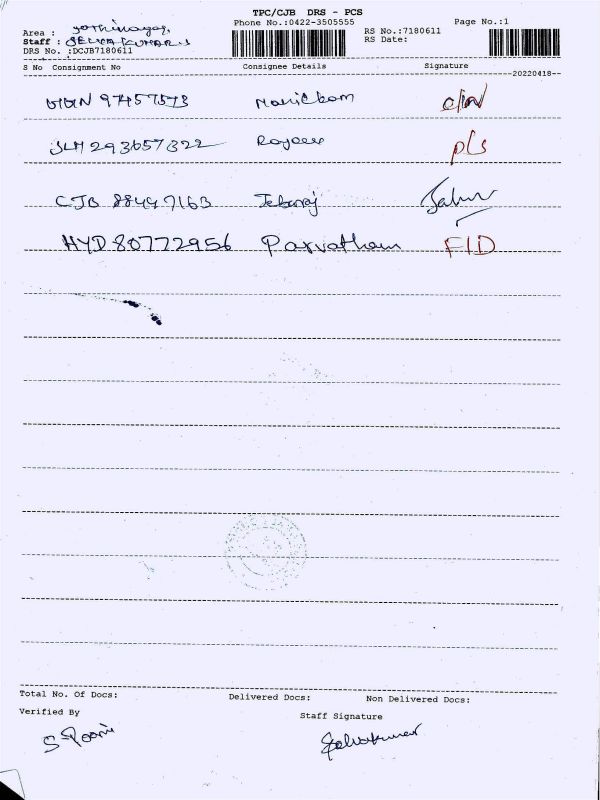 TPC/CJB DRS - PCS
Phone No.:0422-3505555
Page No.:1
Area :
Staff : SELVA KUMAR.S
DRS No. :DCJB7180611
RS No.:7180611
RS Date:
S No Consignment No Consignee Details Signature
--20220418--
97457573
293657322 pls
CJB 88447163 Jebaraj
HYD 80772956 Parvatham FID
Total No. Of Docs: Delivered Docs: Non Delivered Docs:
Verified By Staff Signature